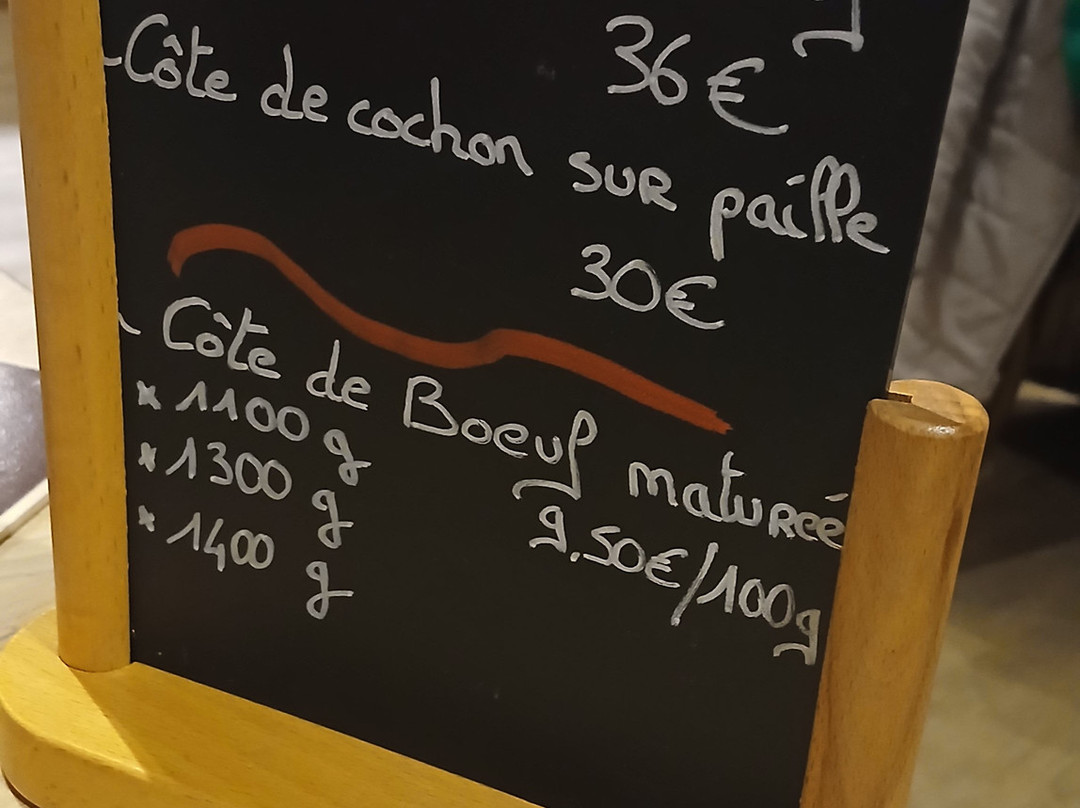 36€
-Côte de cochon sur paille
30€
- Côte de Boeuf maturée
* 1100 g
* 1300 g
* 1400 g
9.50€/100g